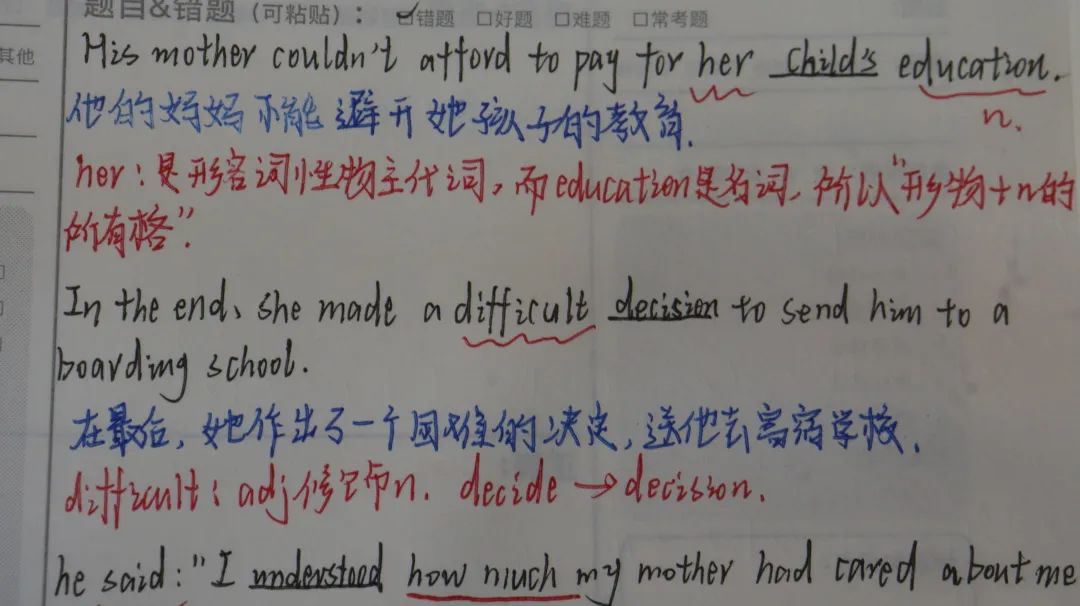 题目&错题(可粘贴): ☑错题 □好题 □难题 □常考题
其他
His mother couldn't afford to pay for her child's education.
n.
他的妈妈不能避开她孩子的教育.
her: 是形容词性物主代词, 而education是名词, 所以"形物+n的
所有格".
In the end, she made a difficult decision to send him to a
boarding school.
在最后, 她作出了一个困难的决定, 送他去寄宿学校.
difficult: adj修饰n. decide → decision.
he said: "I understood how much my mother had cared about me